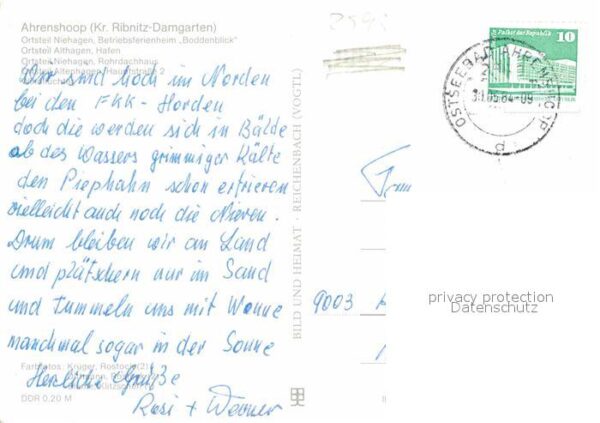 Ahrenshoop (Kr. Ribnitz-Damgarten)
Ortsteil Niehagen, Betriebsferienheim „Boddenblick"
Ortsteil Althagen, Hafen
Ortsteil Niehagen, Rohrdachhaus
Ortsteil Althagen, Hauptstraße 2
Wir sind hoch im Norden
bei den FKK-Horden
doch die werden sich in Bälde
ob des Wassers grimmiger Kälte
den Piephahn schon erfrieren
vielleicht auch noch die Nieren.
Drum bleiben wir an Land
und plätschern nur im Sand
und tummeln uns mit Wonne
manchmal sogar in der Sonne
Herzliche Grüße
Rosi + Werner
Farbfotos: Krüger, Rostock (2)
DDR 0,20 M
BILD UND HEIMAT · REICHENBACH (VOGTL)
Palast der Republik
10
OSTSEEBAD AHRENSHOOP
31.05.84-09
d
9003
privacy protection
Datenschutz